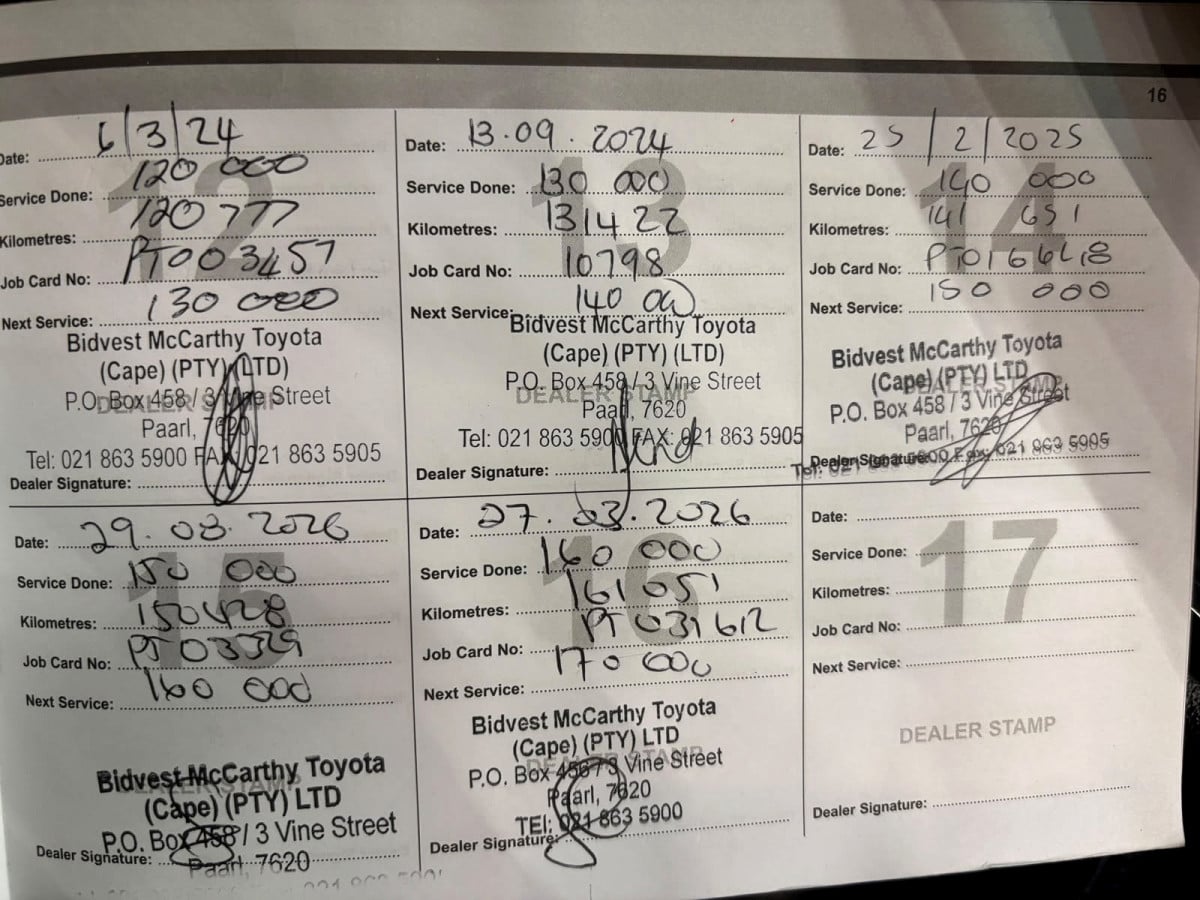 16
12
Date: 6/3/24
Service Done: 120 000
Kilometres: 120777
Job Card No: PT003457
Next Service: 130 000
Bidvest McCarthy Toyota
(Cape) (PTY) (LTD)
P.O. Box 458 / 3 Vine Street
Paarl, 7620
Tel: 021 863 5900 FAX: 021 863 5905
DEALER STAMP
Dealer Signature:
13
Date: 13.09.2024
Service Done: 130 000
Kilometres: 131422
Job Card No: 10798
Next Service: 140 000
Bidvest McCarthy Toyota
(Cape) (PTY) (LTD)
P.O. Box 458 / 3 Vine Street
DEALER STAMP
Paarl, 7620
Tel: 021 863 5900 FAX: 021 863 5905
Dealer Signature:
14
Date: 25/2/2025
Service Done: 140 000
Kilometres: 141 651
Job Card No:
Next Service: 150 000
Bidvest McCarthy Toyota
(Cape) (PTY) LTD
DEALER STAMP
P.O. Box 458 / 3 Vine Street
Paarl, 7620
Tel: 021 863 5900 Fax: 021 863 5905
Dealer Signature:
15
Date: 29.08.2026
Service Done: 150 000
Kilometres: 150428
Job Card No:
Next Service: 160 000
DEALER STAMP
Bidvest McCarthy Toyota
(Cape) (PTY) LTD
P.O. Box 458 / 3 Vine Street
Paarl, 7620
Dealer Signature:
16
Date: 27.03.2026
Service Done: 160 000
Kilometres: 161051
Job Card No: PT031612
Next Service: 170 000
Bidvest McCarthy Toyota
(Cape) (PTY) LTD
DEALER STAMP
P.O. Box 458 / 3 Vine Street
Paarl, 7620
TEl: 021 863 5900
Dealer Signature:
17
Date:
Service Done:
Kilometres:
Job Card No:
Next Service:
DEALER STAMP
Dealer Signature: